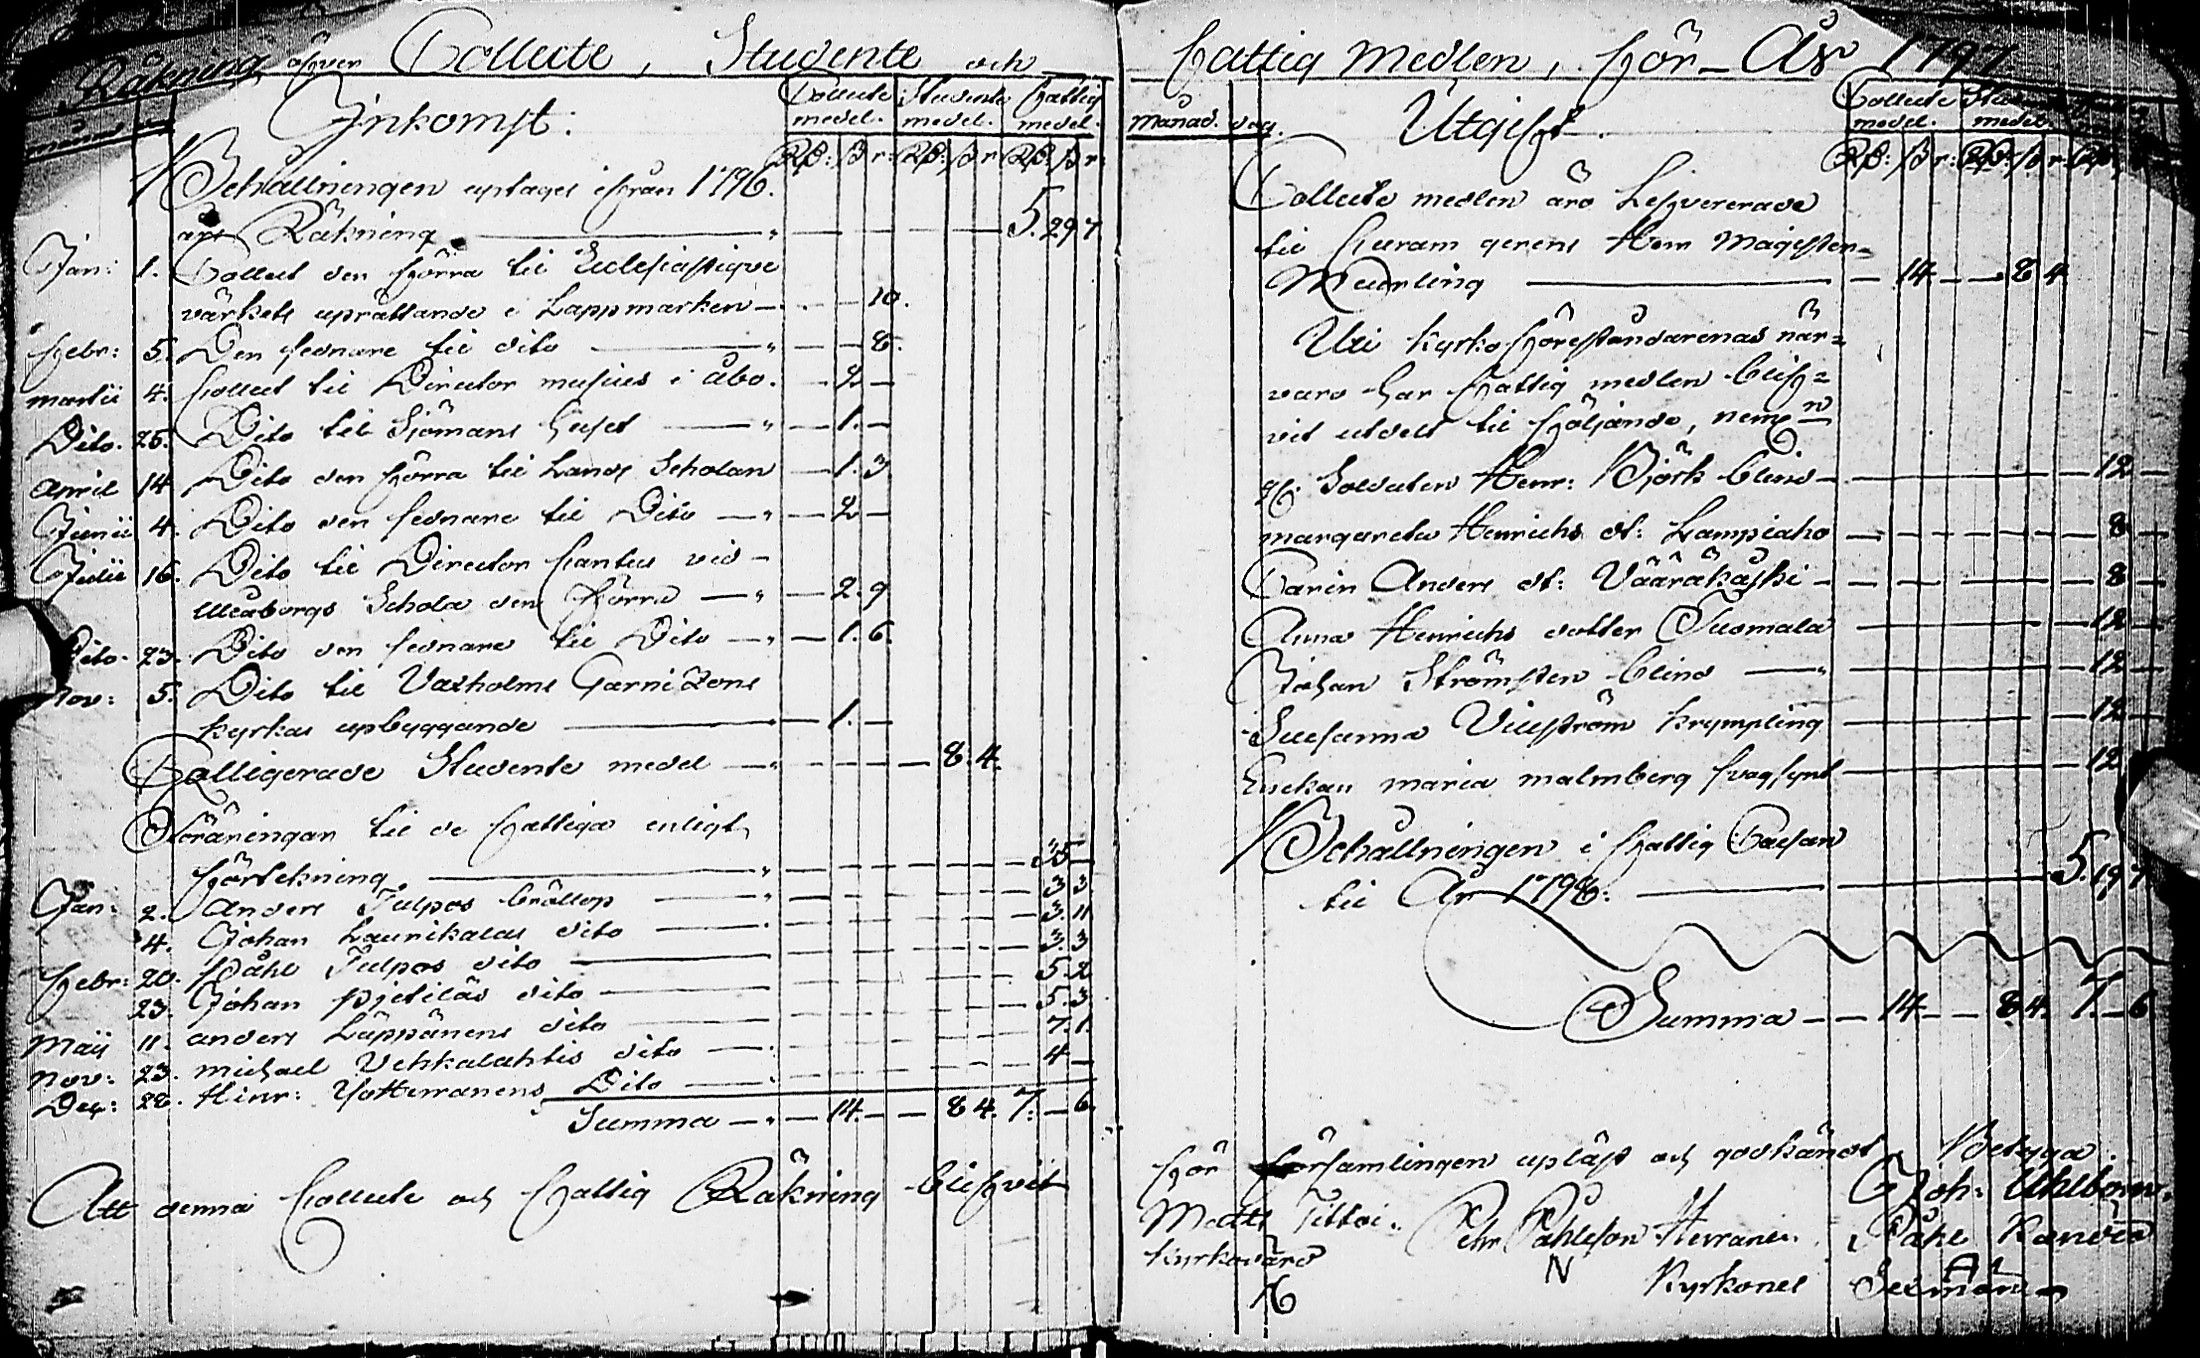 Räkning öfver Collecte, Studente och
Månad dag
Inkomst:
Collecte medel. Studente medel. Fattig medel.
Rd: ß r: Rd: ß r Rd: ß r:
Behållningen uptages ifrån 1796.
års Räkning — 5. 29 7
Jan: 1. Collect den förra til Ecclesiastique
värkets uprättande i Lappmarken — 10.
Febr: 5. Den sednare til dito — 8.
Martii 4. Collect til Director musices i Åbo. — 2 —
Dito. 25. Dito til Sjömans huset — 1. —
April 14 Dito den förra til Lands Scholan — 1. 3
Junii 4. Dito den sednare til Dito — 2 —
Julii 16. Dito til Director Cantus vid
Uleåborgs Schola den förra — 2. 9
Dito. 23. Dito den sednare til Dito — 1. 6.
Nov: 5. Dito til Vaxholms Garnizons
kyrkas upbyggande — 1. —
Colligerade Studente medel — 8. 4.
Föräringar til de fattiga enligt
förtekning — 35 —
Jan: 2. Anders Julpos bröllop — 3 3
4. Johan Laurikalas dito — 3. 11
Febr: 20. Påhl Julpos dito — 3. 3
23. Johan Pjetiläs dito — 5. 2
Maij 11. Anders Läppänens dito — 5. 3
Nov: 23. Michael Vehkalahtis dito — 7. 1.
Dec: 28. Hinr: Dito — 4 —
Summa — 14. — 8 4. 7. — 6.
Att denna Collecte och Fattig Räkning blifvit
Fattig Medlen, för År 1797
Månad. dag. Utgift.
Collecte medel. medel.
Rd: ß r: Rd: ß r
Collecte medlen äro Lefvererade
til Curam gerens Herr Magister
Meurling — 14 — 8 4
Uti Kyrko föreståndarenas när=
varo har fattig medlen blif=
vit utdelt til följande, nemen
Soldaten Henr: Björk blind — 12 —
Margareta Henrichs dt: Lampiaho — 8 —
Carin Anders dt: Vääräkåski — 8 —
Anna Henrichs dotter Suomala — 12 —
Johan Strömsten blind — 12 —
Susanna Viuström Krympling — 12 —
Enckan Maria Malmberg svagsynt — 12
Behållningen i fattig Cassan
til År 1798: — 5. 19 7
Summa — 14 — 8 4. 7. — 6
för församlingen upläst och godkändt, Betyga.
Joh: Uhlbom.
Matts Tittoi. Pehr Påhlsson Herranen. Påhl
Kyrkovärd N
Kyrkones Sexmän